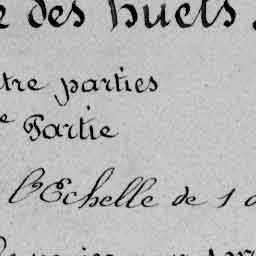 des Puels
tre parties
e Partie
l'Echelle de 1 a